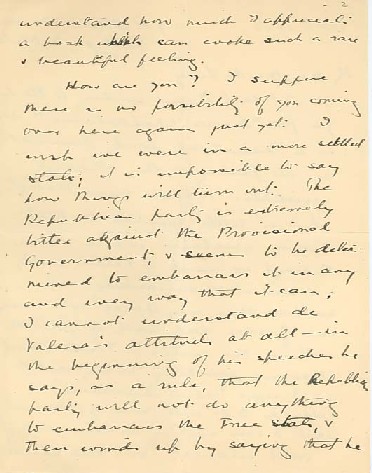 2
understand how much I appreciate
a book which can evoke such a rare
& beautiful feeling.
How are you? I suppose
there is no possibility of you coming
over here again just yet. I
wish we were in a more settled
state; it is impossible to say
how things will turn out. The
Republican party is extremely
bitter against the Provisional
Government, & seem to be deter
mined to embarrass it in any
and every way that it can;
I cannot understand de
Valera's attitude at all — in
the beginning of his speeches he
says, as a rule, that the Republican
party will not do anything
to embarrass the Free State, &
then winds up by saying that he